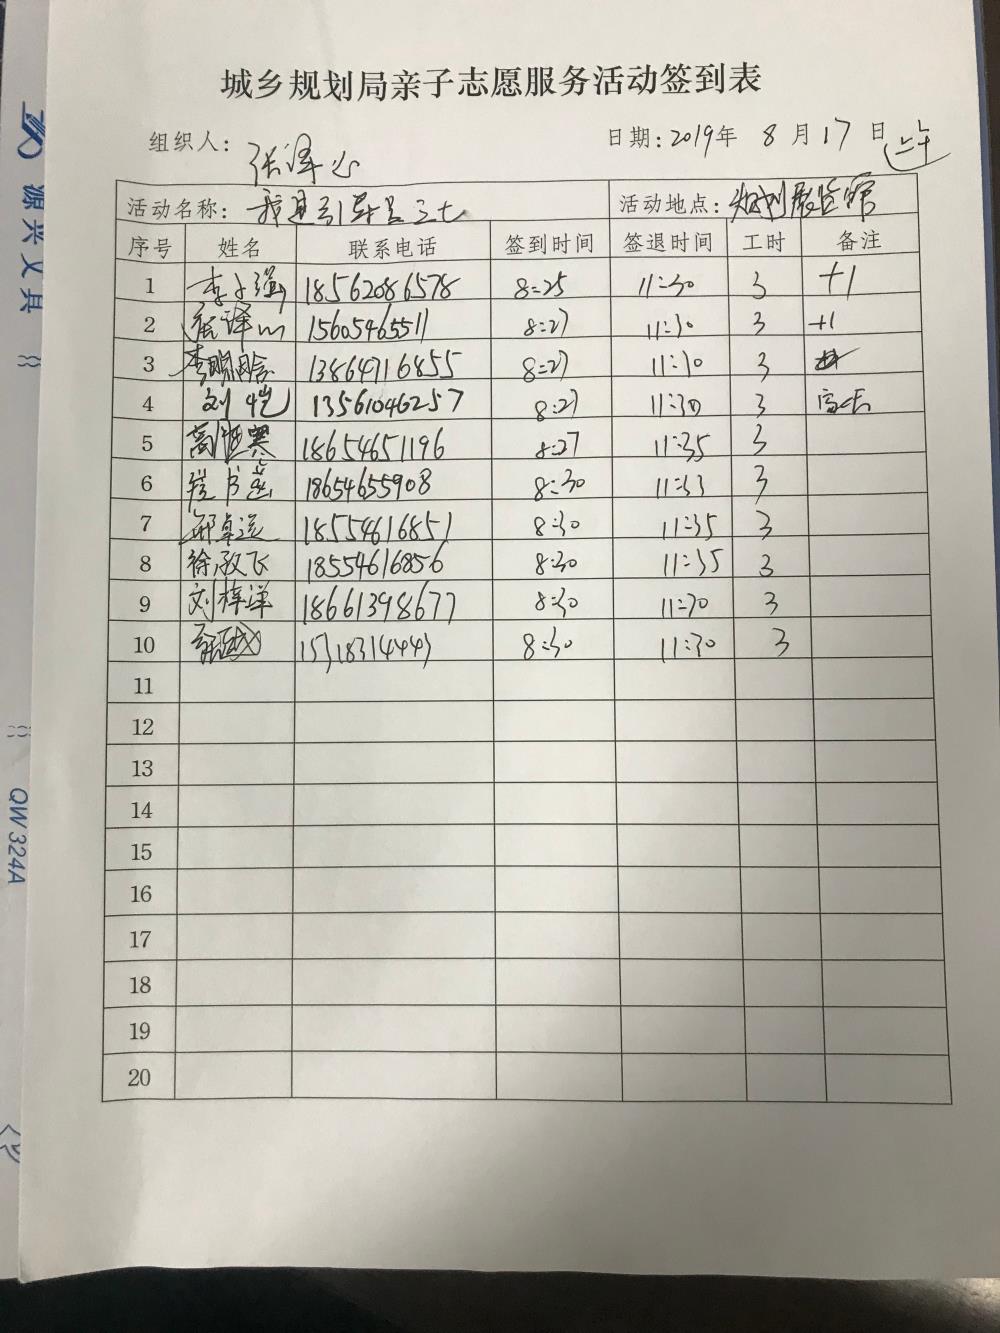 城乡规划局亲子志愿服务活动签到表
组织人: 张泽心 日期: 2019年 8月17日 上午
活动名称: 我是引导员 活动地点: 规划展览馆
序号 姓名 联系电话 签到时间 签退时间 工时 备注
1 李子涵 18562086578 8:25 11:30 3 +1
2 15605465511 8:27 11:30 3 +1
3 13864716855 8:27 11:30 3
4 刘恺 13561046257 8:27 11:30 3
5 18654651196 8:27 11:35 3
6 18654655908 8:30 11:33 3
7 18554616851 8:30 11:35 3
8 徐敬飞 18554616856 8:30 11:35 3
9 刘梓洋 18661398677 8:30 11:30 3
10 15318314443 8:30 11:30 3
11
12
13
14
15
16
17
18
19
20
源兴文具
QW324A